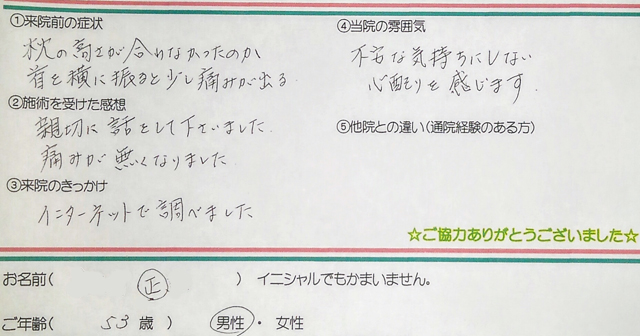 ①来院前の症状
枕の高さが合わなかったのか
首を横に振ると少し痛みが出る
②施術を受けた感想
親切に話をして下さいました
痛みが無くなりました
③来院のきっかけ
インターネットで調べました
④当院の雰囲気
不安な気持ちにしない
心配りを感じます
⑤他院との違い(通院経験のある方)
☆ご協力ありがとうございました☆
お名前( 正 ) イニシャルでもかまいません。
ご年齢( 53 歳 ) 男性 ・ 女性